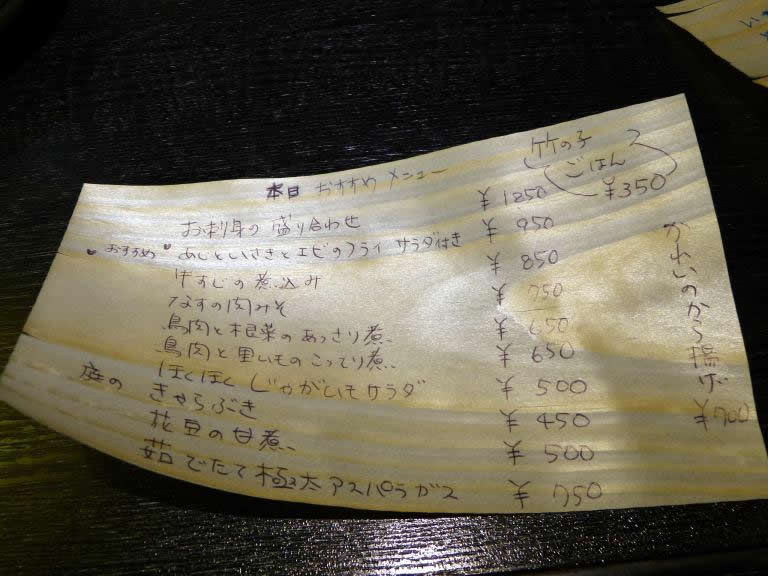 本日 おすすめ メニュー
竹の子
ごはん
¥350
お刺身の盛り合わせ ¥1250
♥ おすすめ ♥ あじといさきとエビのフライ サラダ付き ¥950
牛すじの煮込み ¥850
なすの肉みそ ¥750
鳥肉と根菜のあっさり煮 ¥650
鳥肉と里いものこってり煮 ¥650
ほくほく じゃがいもサラダ ¥500
庭の きゃらぶき ¥450
花豆の甘煮 ¥500
茹でたて 極太アスパラガス ¥750
かれいのから揚げ ¥700